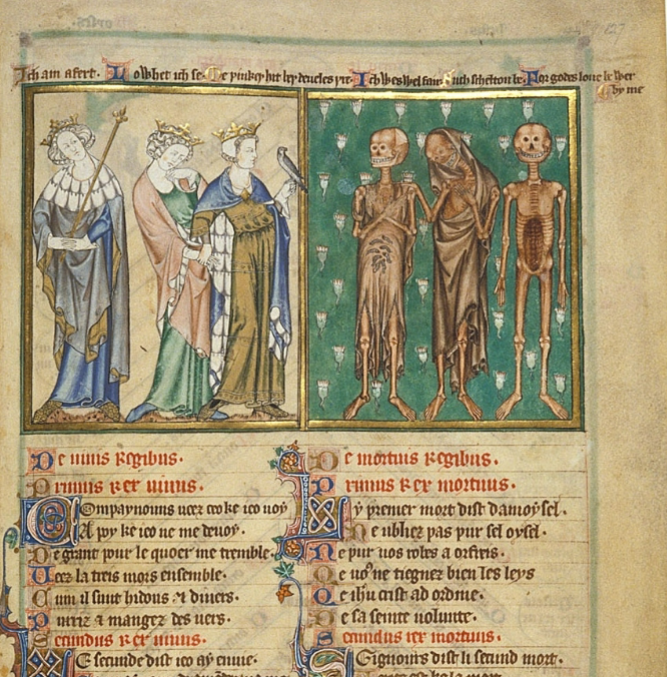 Ich am afert. Lo whet ich se. Me þinkeþ hit bey deueles þre. Ich wes wel fair. Such scheltou be. For godes loue be wer
by me
127
De uiuis regibus.
Primus rex uiuus.
Compaynouns ueez ceo ke ieo uoy
A poy ke ieo ne me deuoy.
De grant pour le quoer me tremble.
Ueez la treis mors ensemble.
Cum il sunt hidous & diuers.
Puriz & mangez des uers.
Secundus rex uiuus.
Le secunde dist ieo ay enuie.
De mortuis regibus.
Primus rex mortuus.
Ly premer mort dist damoysel.
Ne ubliez pas pur sel oysel.
Ne pur uos robes a orfreis.
Qe uoꝰ ne tiegnez bien les leys
Qe ihu crist ad ordine.
De sa seinte volunte.
Secundus rex mortuus.
Seignours dist li secund mort.